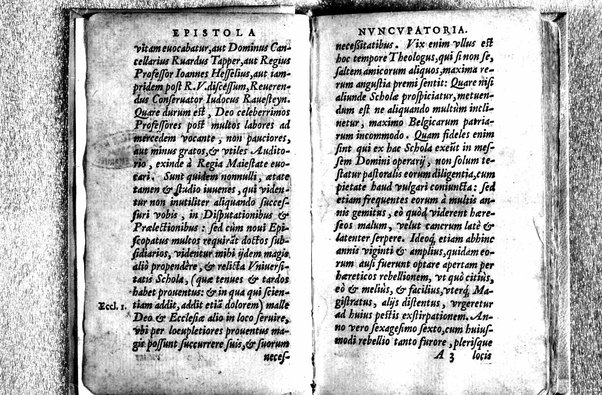 EPISTOLA
vitam euocabatur, aut Dominus Can-
cellarius Ruardus Tapper, aut Regius
Professor Ioannes Hesselius, aut tam-
pridem post R.V. discessum, Reueren-
dus Conseruator Iudocus Rauesteyn.
Quare durum est, Deo celeberrimos
Professores post multos labores ad
mercedem vocante, non pauciores,
aut minus gratos, & vtiles Audito-
rio, exinde à Regia Maiestate euo-
cari. Sunt quidem nonnulli, ætate
tamen & studio iuuenes, qui viden-
tur non inutiliter aliquando succes-
suri vobis, in Disputationibus &
Prælectionibus: sed cùm noui Epi-
scopatus multos requirāt doctos sub-
sidiarios, videntur mihi ijdem magis
aliò propendêre, & relicta Vniuersi-
tatis Schola, (quæ tenues & tardos
habet prouentus: & in qua qui scien-
Eccl. 1. tiam addit, addit etiā dolorem) malle
Deo & Ecclesiæ alio in loco seruire,
vbi per locupletiores prouentus ma-
gis possunt succurrere suis, & suorum
neces-
NVNCVPATORIA.
necessitatibus. Vix enim vllus est
hoc tempore Theologus, qui si non se,
saltem amicorum aliquos, maxima re-
rum angustia premi sentit: Quare nisi
aliunde Scholæ prospiciatur, metuen-
dum est ne aliquando multùm incli-
netur, maximo Belgicarum patria-
rum incommodo. Quam fideles enim
sint qui ex hac Schola exeūt in mes-
sem Domini operarij, non solum te-
statur pastoralis eorum diligentia, cum
pietate haud vulgari coniuncta: sed
etiam frequentes eorum à multis an-
nis gemitus, eò quòd viderent hære-
seos malum, velut cancrum latè &
latenter serpere. Ideoq́; etiam abhinc
annis viginti & ampliùs, quidam eo-
rum ausi fuerunt optare apertam per
hæreticos rebellionem, vt quò citiùs,
eò & meliùs, & facilius, vterq́; Ma-
gistratus, alijs distentus, vrgeretur
ad huius pestis exstirpationem. An-
no vero sexagesimo sexto, cum huius-
modi rebellio tanto furore, plerisque
A 3 locis